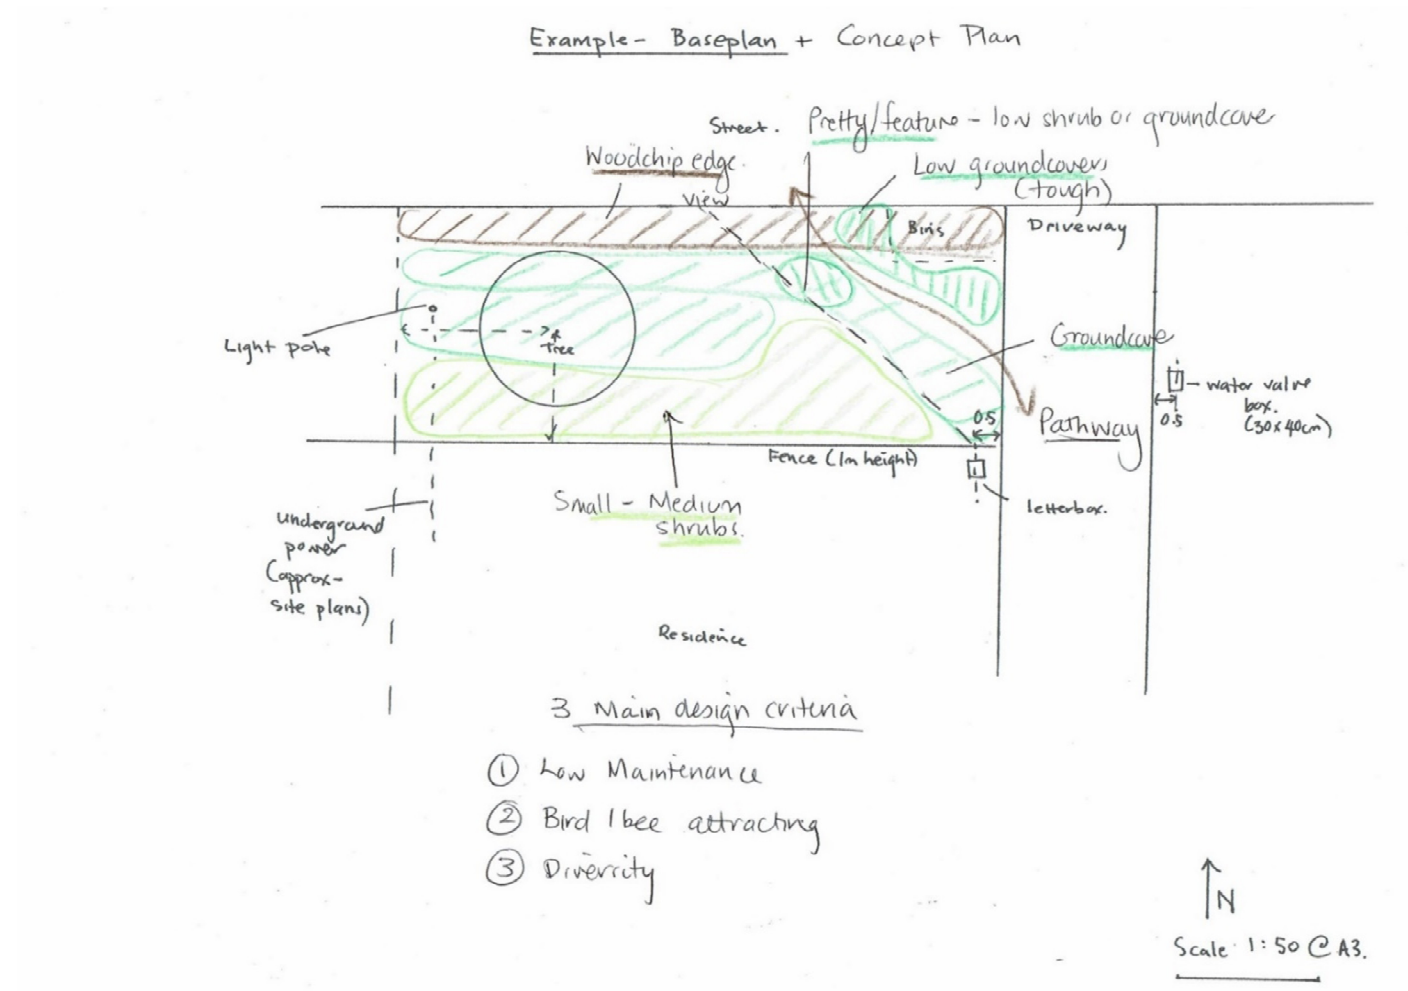 Example - Baseplan + Concept Plan
Street.
Pretty/feature - low shrub or groundcover
Woodchip edge.
Low groundcovers
(tough)
View
Bins
Driveway
Light pole
Tree
Groundcover
water valve
box.
(30x40cm)
0.5
0.5
Pathway
Fence (1m height)
letterbox.
Small - Medium
shrubs.
underground
power
(approx-
site plans)
Residence
3 Main design criteria
① Low Maintenance
② Bird / bee attracting
③ Diversity
N
Scale 1:50 @ A3.